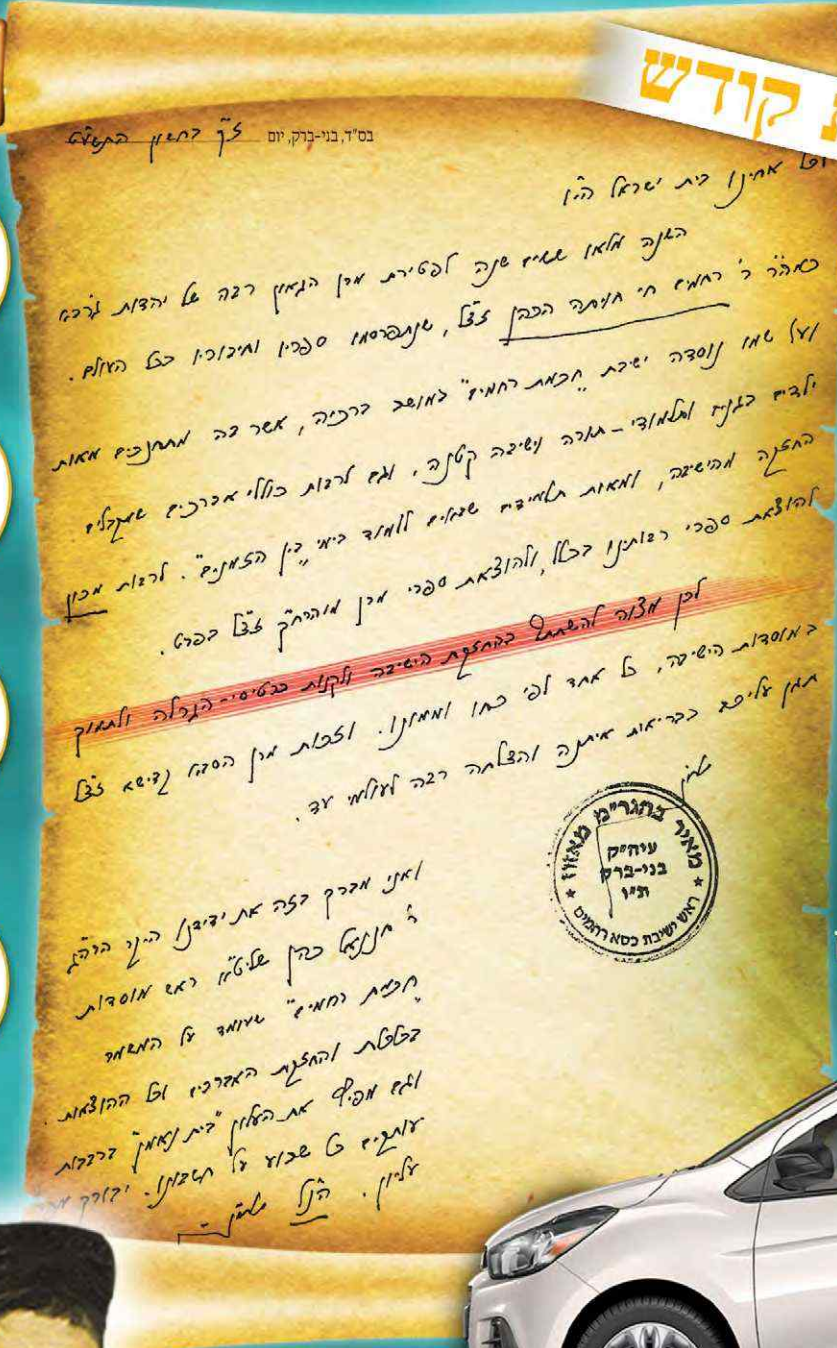 קודש
בס"ד, בני-ברק, יום ז"ך בחשון התשע"ט
וכל אחינו בית ישראל הי"ו
השנה מלאו ששים שנה לפטירת מרן הגאון רבה של יהדות ג'רבא
כמהר"ר ר' רחמים חי חויתה הכהן זצ"ל, שנתפרסמו ספריו וחיבוריו בכל העולם.
ועל שמו נוסדה ישיבת "חכמת רחמים" במושב ברכיה, אשר בה מתחנכים מאות
ילדים בגנים ותלמודי-תורה וישיבה קטנה. וגם לרבות כוללי אברכים שמקבלים
החזקה מהישיבה, ומאות תלמידים שבאים ללמוד בימי "בין הזמנים". לרבות מכון
להוצאת ספרי רבותינו בכלל, ולהוצאת ספרי מרן מוהרח"ק זצ"ל בפרט.
לכן מצוה להשתתף בהחזקת הישיבה ולקנות כרטיסי-הגרלה ולתמוך
במוסדות הישיבה, כל אחד לפי כחו וממונו. וזכות מרן הסבא קדישא זצ"ל
תגן עליכם בבריאות איתנה והצלחה רבה לעולמי עד.
מאיר בהגר"מ מאזוז
עיה"ק
בני-ברק
ת"ו
ראש ישיבת כסא רחמים
ואני מברך בזה את ידידנו היקר הרה"ג
ר' חננאל כהן שליט"א ראש מוסדות
"חכמת רחמים" שעומד על המשמר
בכלכלת והחזקת האברכים וכל ההוצאות.
וגם מפיץ את העלון "בית נאמן" ברבבות
עותקים כל שבוע על חשבונו. יבורק
עליון. הנ"ל